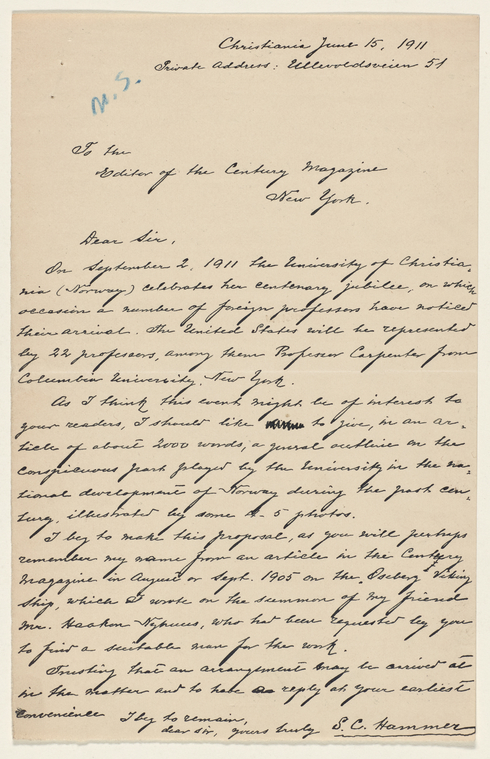 Christiania June 15, 1911
Private Address: Ullevoldsveien 51
M.S.
To the
Editor of the Century Magazine
New York.
Dear Sir,
On September 2, 1911 the University of Christia-
nia (Norway) celebrates her centenary jubilee, on which
occasion a number of foreign professors have noticed
their arrival. The United States will be represented
by 22 professors, among them Professor Carpenter from
Columbia University, New York.
As I think this event might be of interest to
your readers, I should like to give, in an ar-
ticle of about 2000 words, a general outline on the
conspicuous part played by the University in the na-
tional development of Norway during the past cen-
tury, illustrated by some 4-5 photos.
I beg to make this proposal, as you will perhaps
remember my name from an article in the Century
Magazine in August or Sept. 1905 on the "Oseberg" Viking
Ship, which I wrote on the summon of my friend
Mr. Haakon Nyhuus, who had been requested by you
to find a suitable man for the work.
Trusting that an arrangement may be arrived at
in the matter and to have a reply at your earliest
convenience I beg to remain,
dear sir, yours truly S. C. Hammer